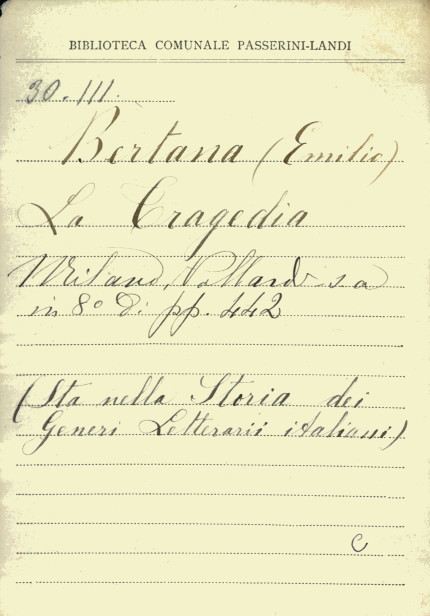 BIBLIOTECA COMUNALE PASSERINI-LANDI
30.III.
Bertana (Emilio)
La Tragedia
Milano, Vallardi s.a
in 8º di pp. 442
(Sta nella Storia dei
Generi Letterarii italiani)
C